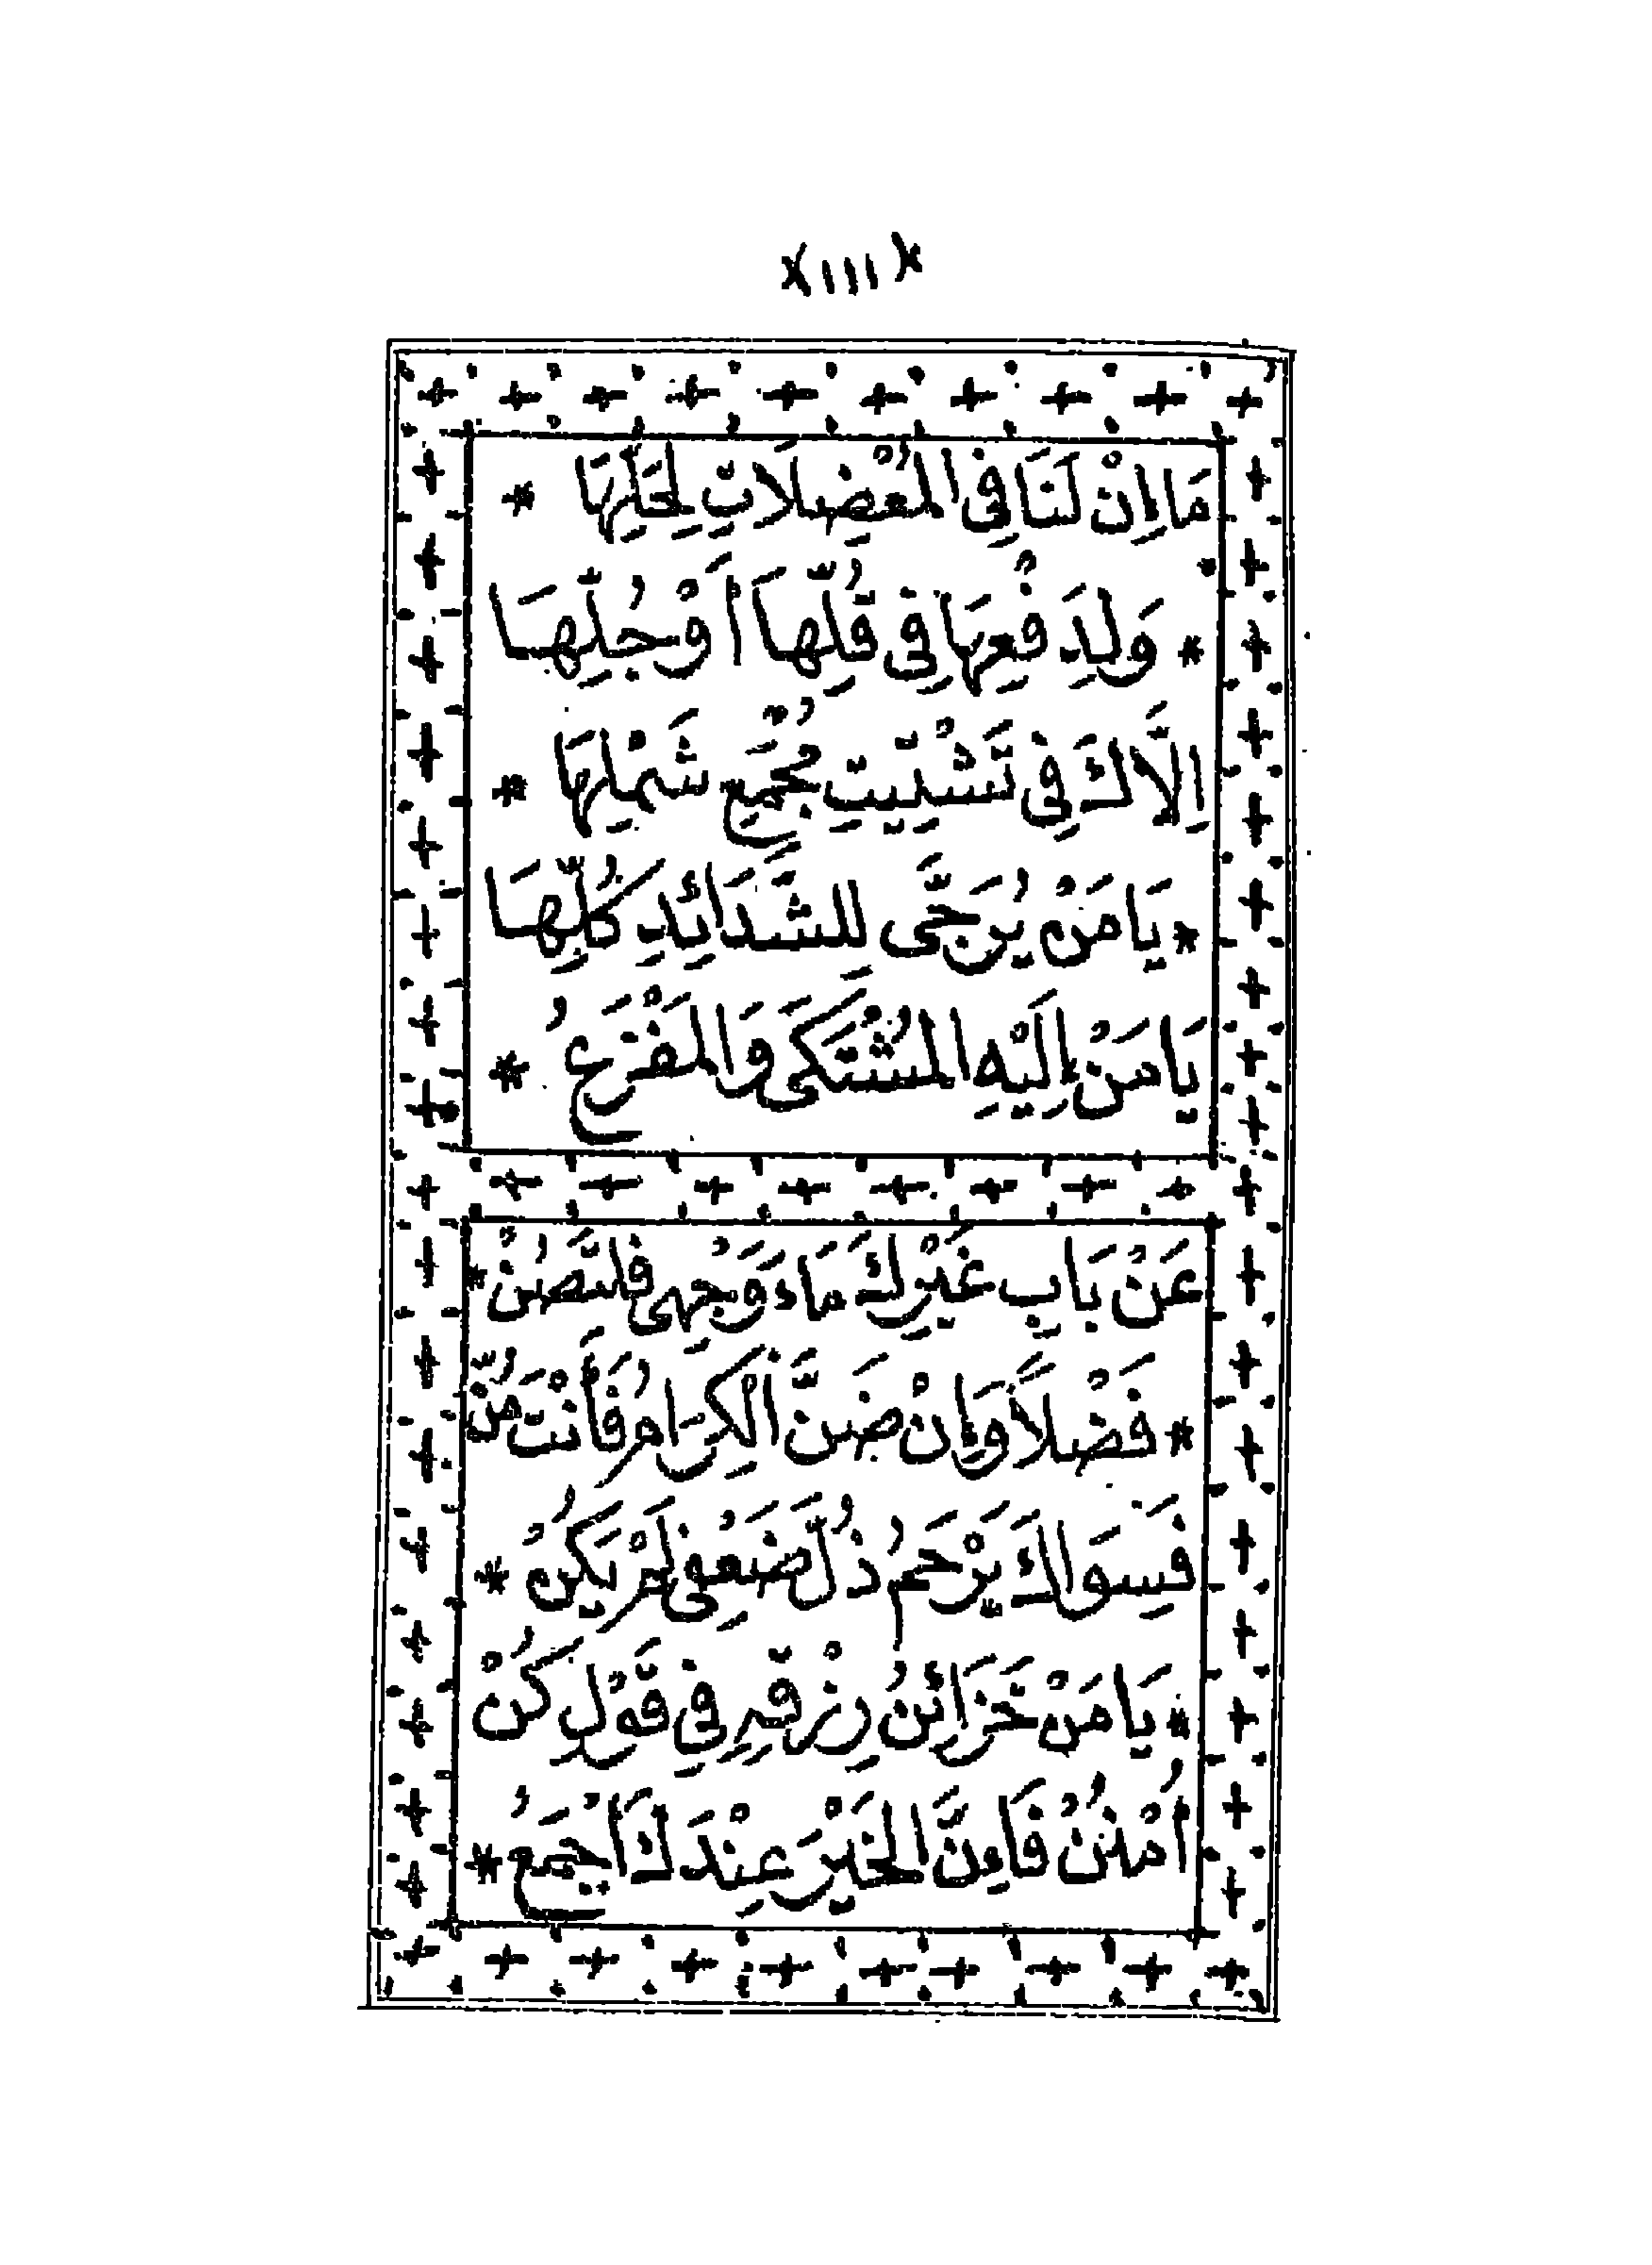 ﴿١١١﴾
مَا اِنْ لَنَا فِى الْمُعْضِلَاتِ لِحَلِّهَا *
* وَلِدَفْعِهَا فِى قُلِّهَا اَوْ جُلِّهَا
اِلَّاكَ فِى تَشْتِيتِ مُجْمَعِ شَمْلِهَا *
* يَا مَنْ يُرَجَّى لِلشَّدَائِدِ كُلِّهَا
يَا مَنْ إِلَيْهِ الْمُشْتَكَى وَالْمَفْزَعُ *
عَنْ بَابِ غَيْرِكَ مَاءَ وَجْهِى فَلْتَصُنْ *
* فَضْلًا وَإِنْ ضَنَّ الْكِرَامُ فَأَنْتَ مُنّْ
فَسِوَاكَ يَرْحَمُ ذُلَّ ضَعْفِى لَمْ يَكُنْ *
* يَا مَنْ خَزَائِنُ رِزْقِهِ فِى قَوْلِ كُنْ
اُمْنُنْ فَاِنَّ الْخَيْرَ عِنْدَكَ اَجْمَعُ *